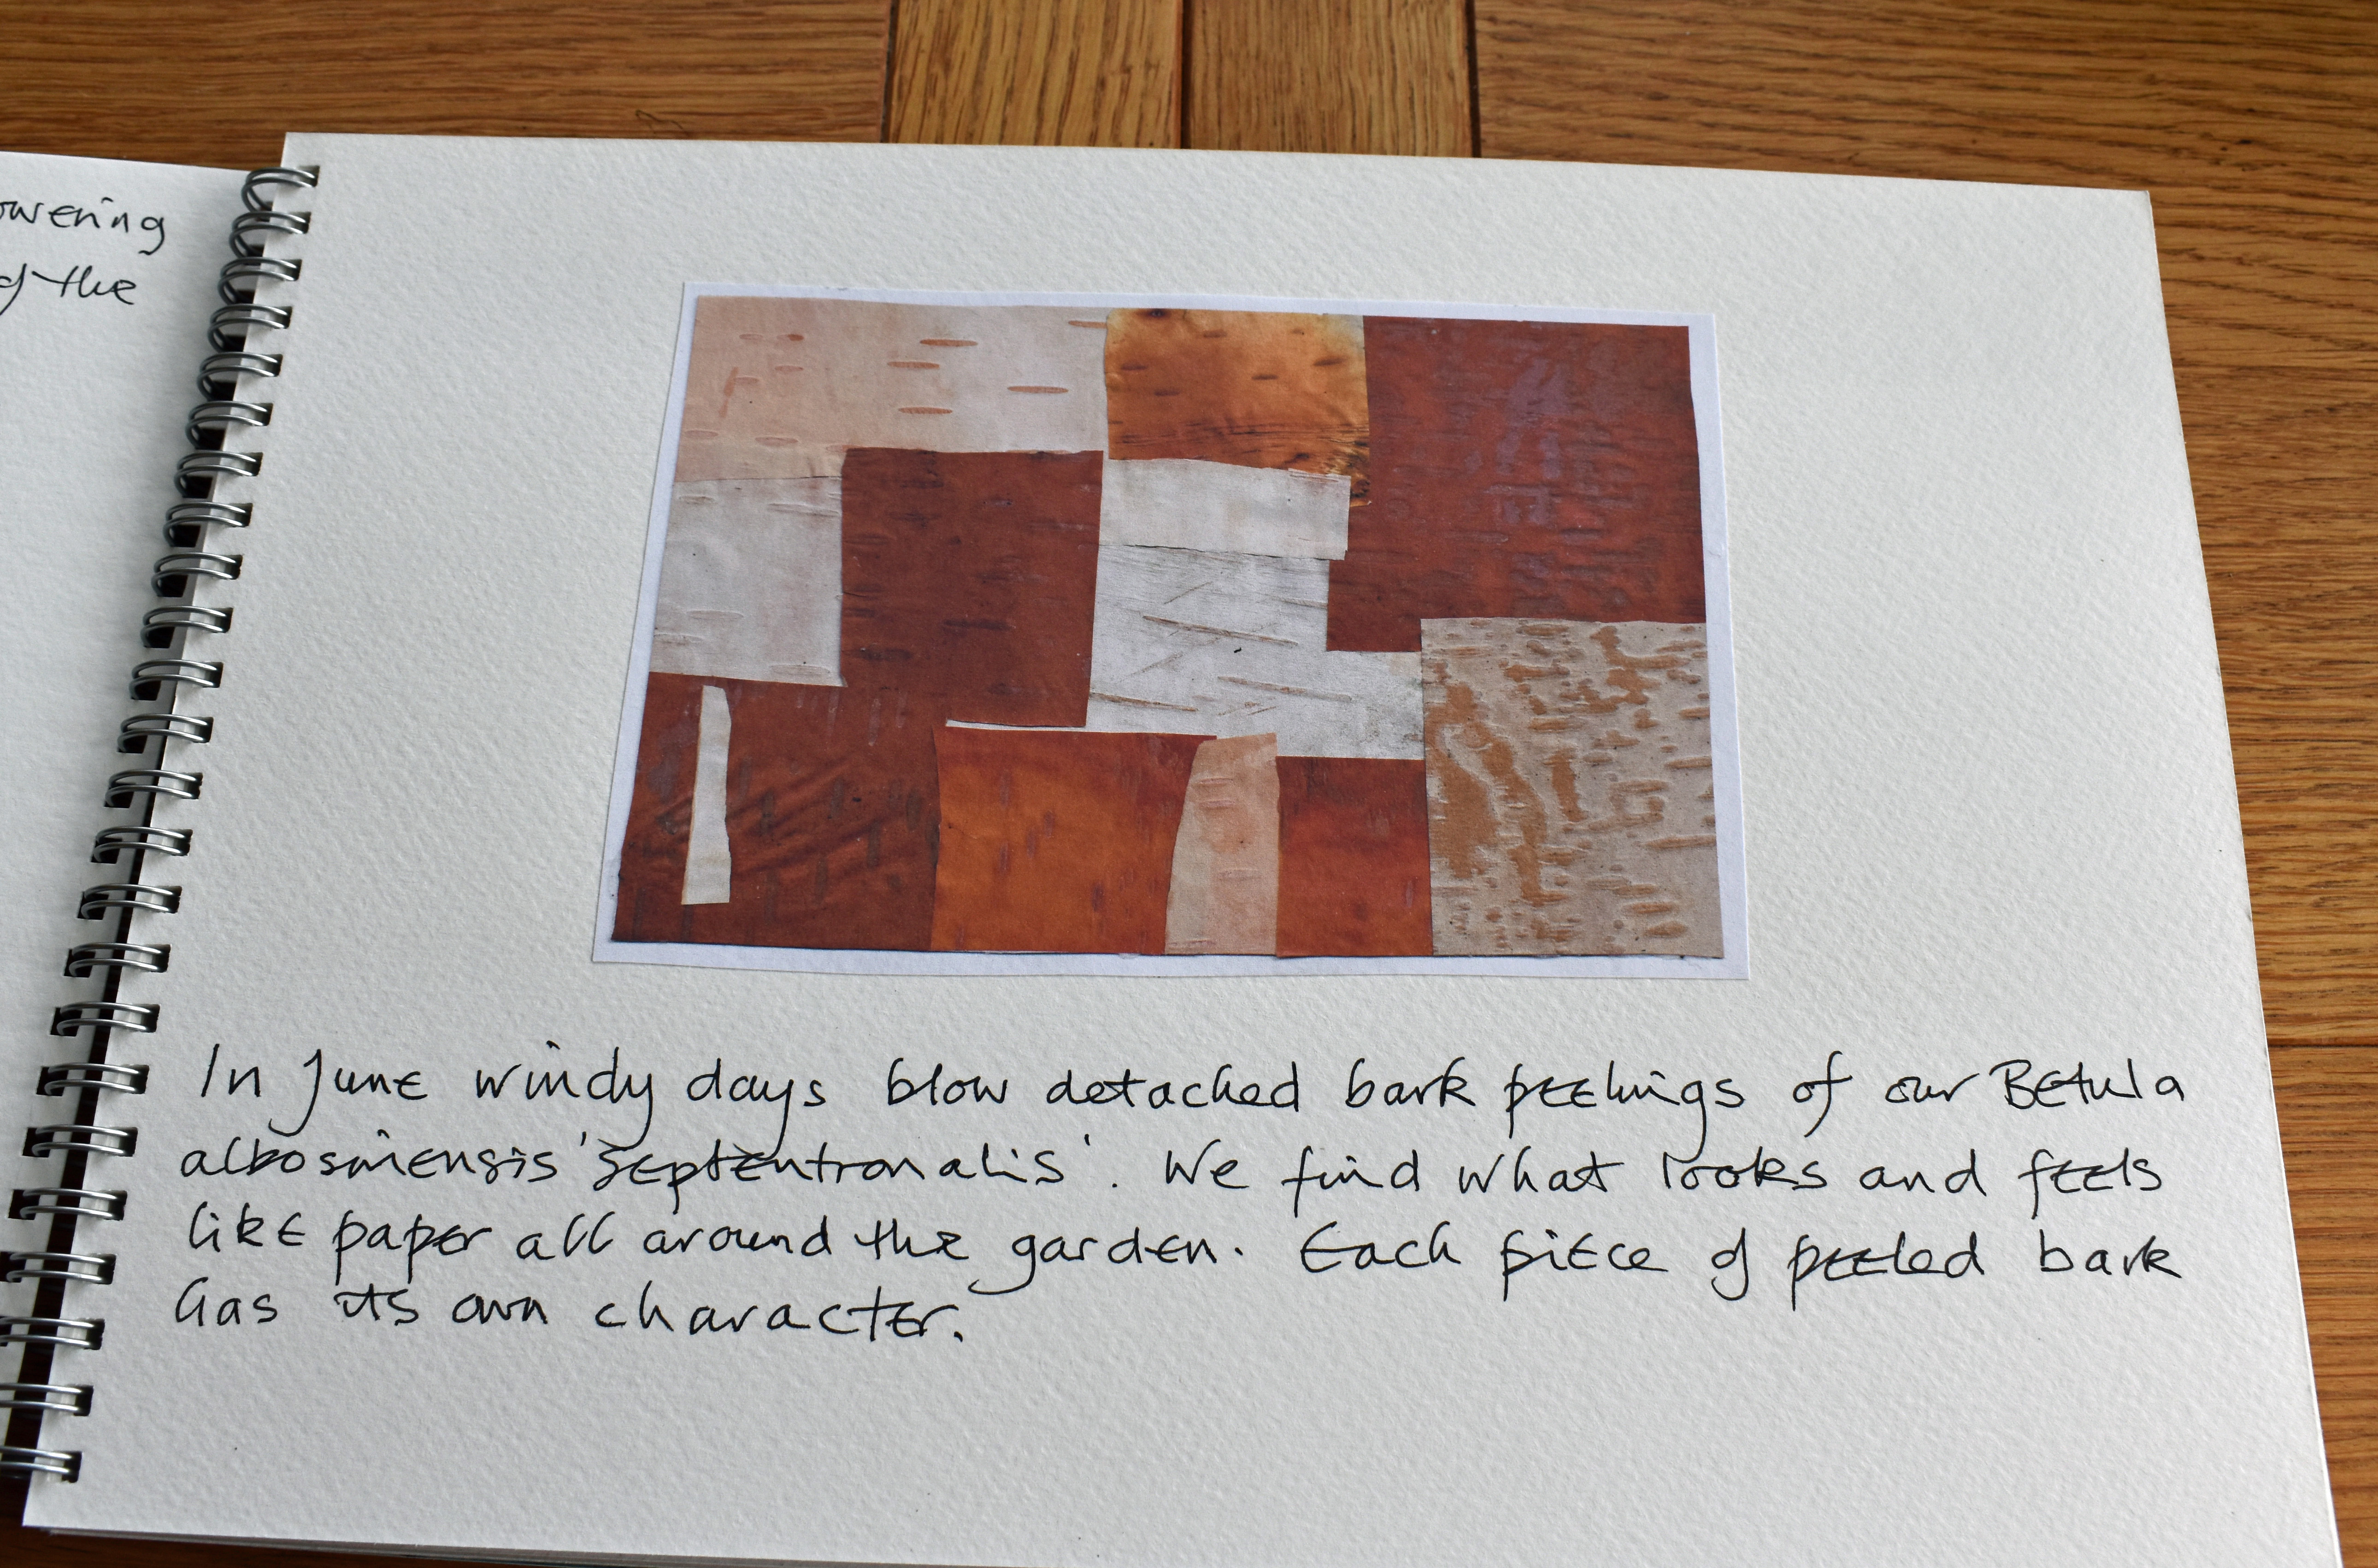 owering
of the
In June windy days blow detached bark peelings of our Betula
albosiniensis 'Septentronalis'. We find what looks and feels
like paper all around the garden. Each piece of peeled bark
has its own character.